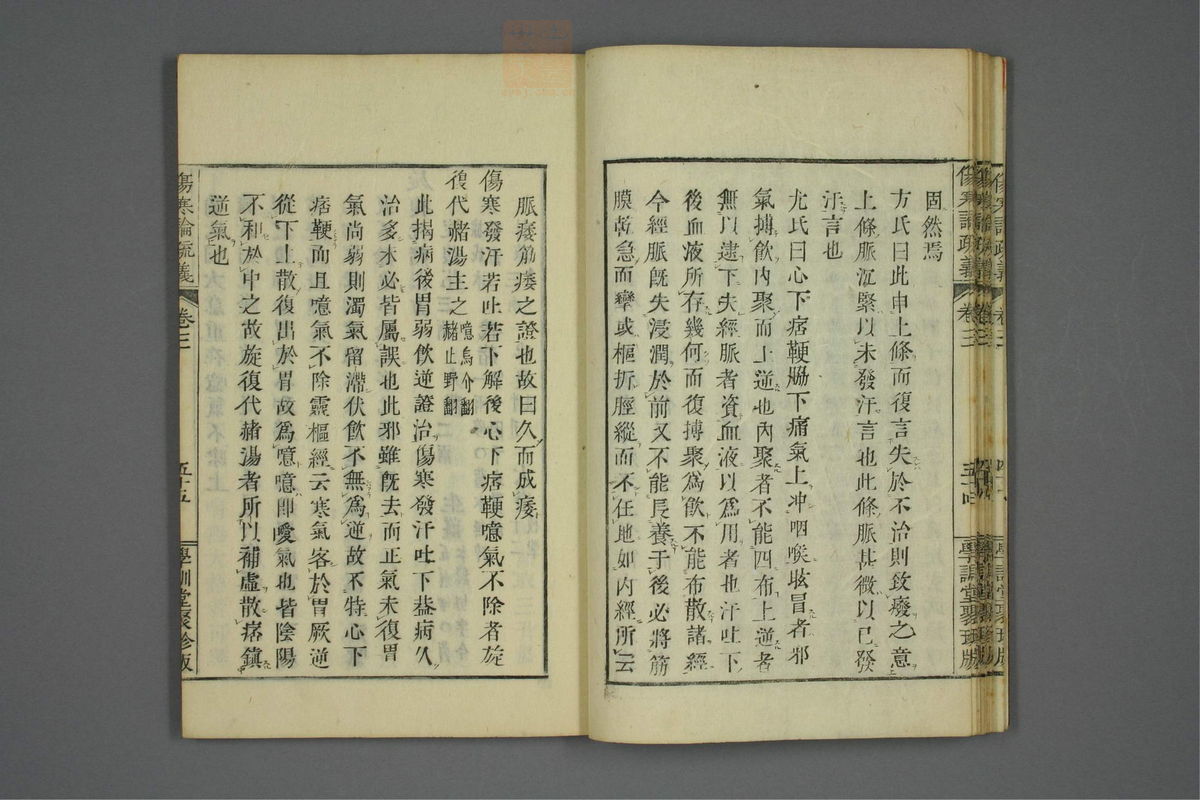 固然焉
方氏曰此申上條而復言失於不治則致癈之意
上條脈沉緊以未發汗言也此條脈甚微以已發
汗言也
尤氏曰心下痞鞕脇下痛氣上冲咽喉眩冒者邪
氣搏飲內聚而上逆也內聚者不能四布上逆者
無以逮下夫經脈者資血液以爲用者也汗吐下
後血液所存幾何而復搏聚爲飲不能布散諸經
今經脈旣失浸潤於前又不能長養于後必將筋
膜乾急而攣或樞折脛縱而不任地如內經所云
傷寒論疏義
卷三
五十四
學訓堂聚珍版
脈痿筋痿之證也故曰久而成痿
傷寒發汗若吐若下解後心下痞鞕噫氣不除者旋
復代赭湯主之 噫烏介翻
赭止野翻
此揭病後胃弱飲逆證治傷寒發汗吐下蓋病久
治多未必皆屬誤也此邪雖旣去而正氣未復胃
氣尚弱則濁氣留滯伏飲不無爲逆故不特心下
痞鞕而且噫氣不除靈樞經云寒氣客於胃厥逆
從下上散復出於胃故爲噫噫卽噯氣也皆陰陽
不和於中之故旋復代赭湯者所以補虛散痞鎮
逆氣也
傷寒論疏義
卷三
五十五
學訓堂聚珍版